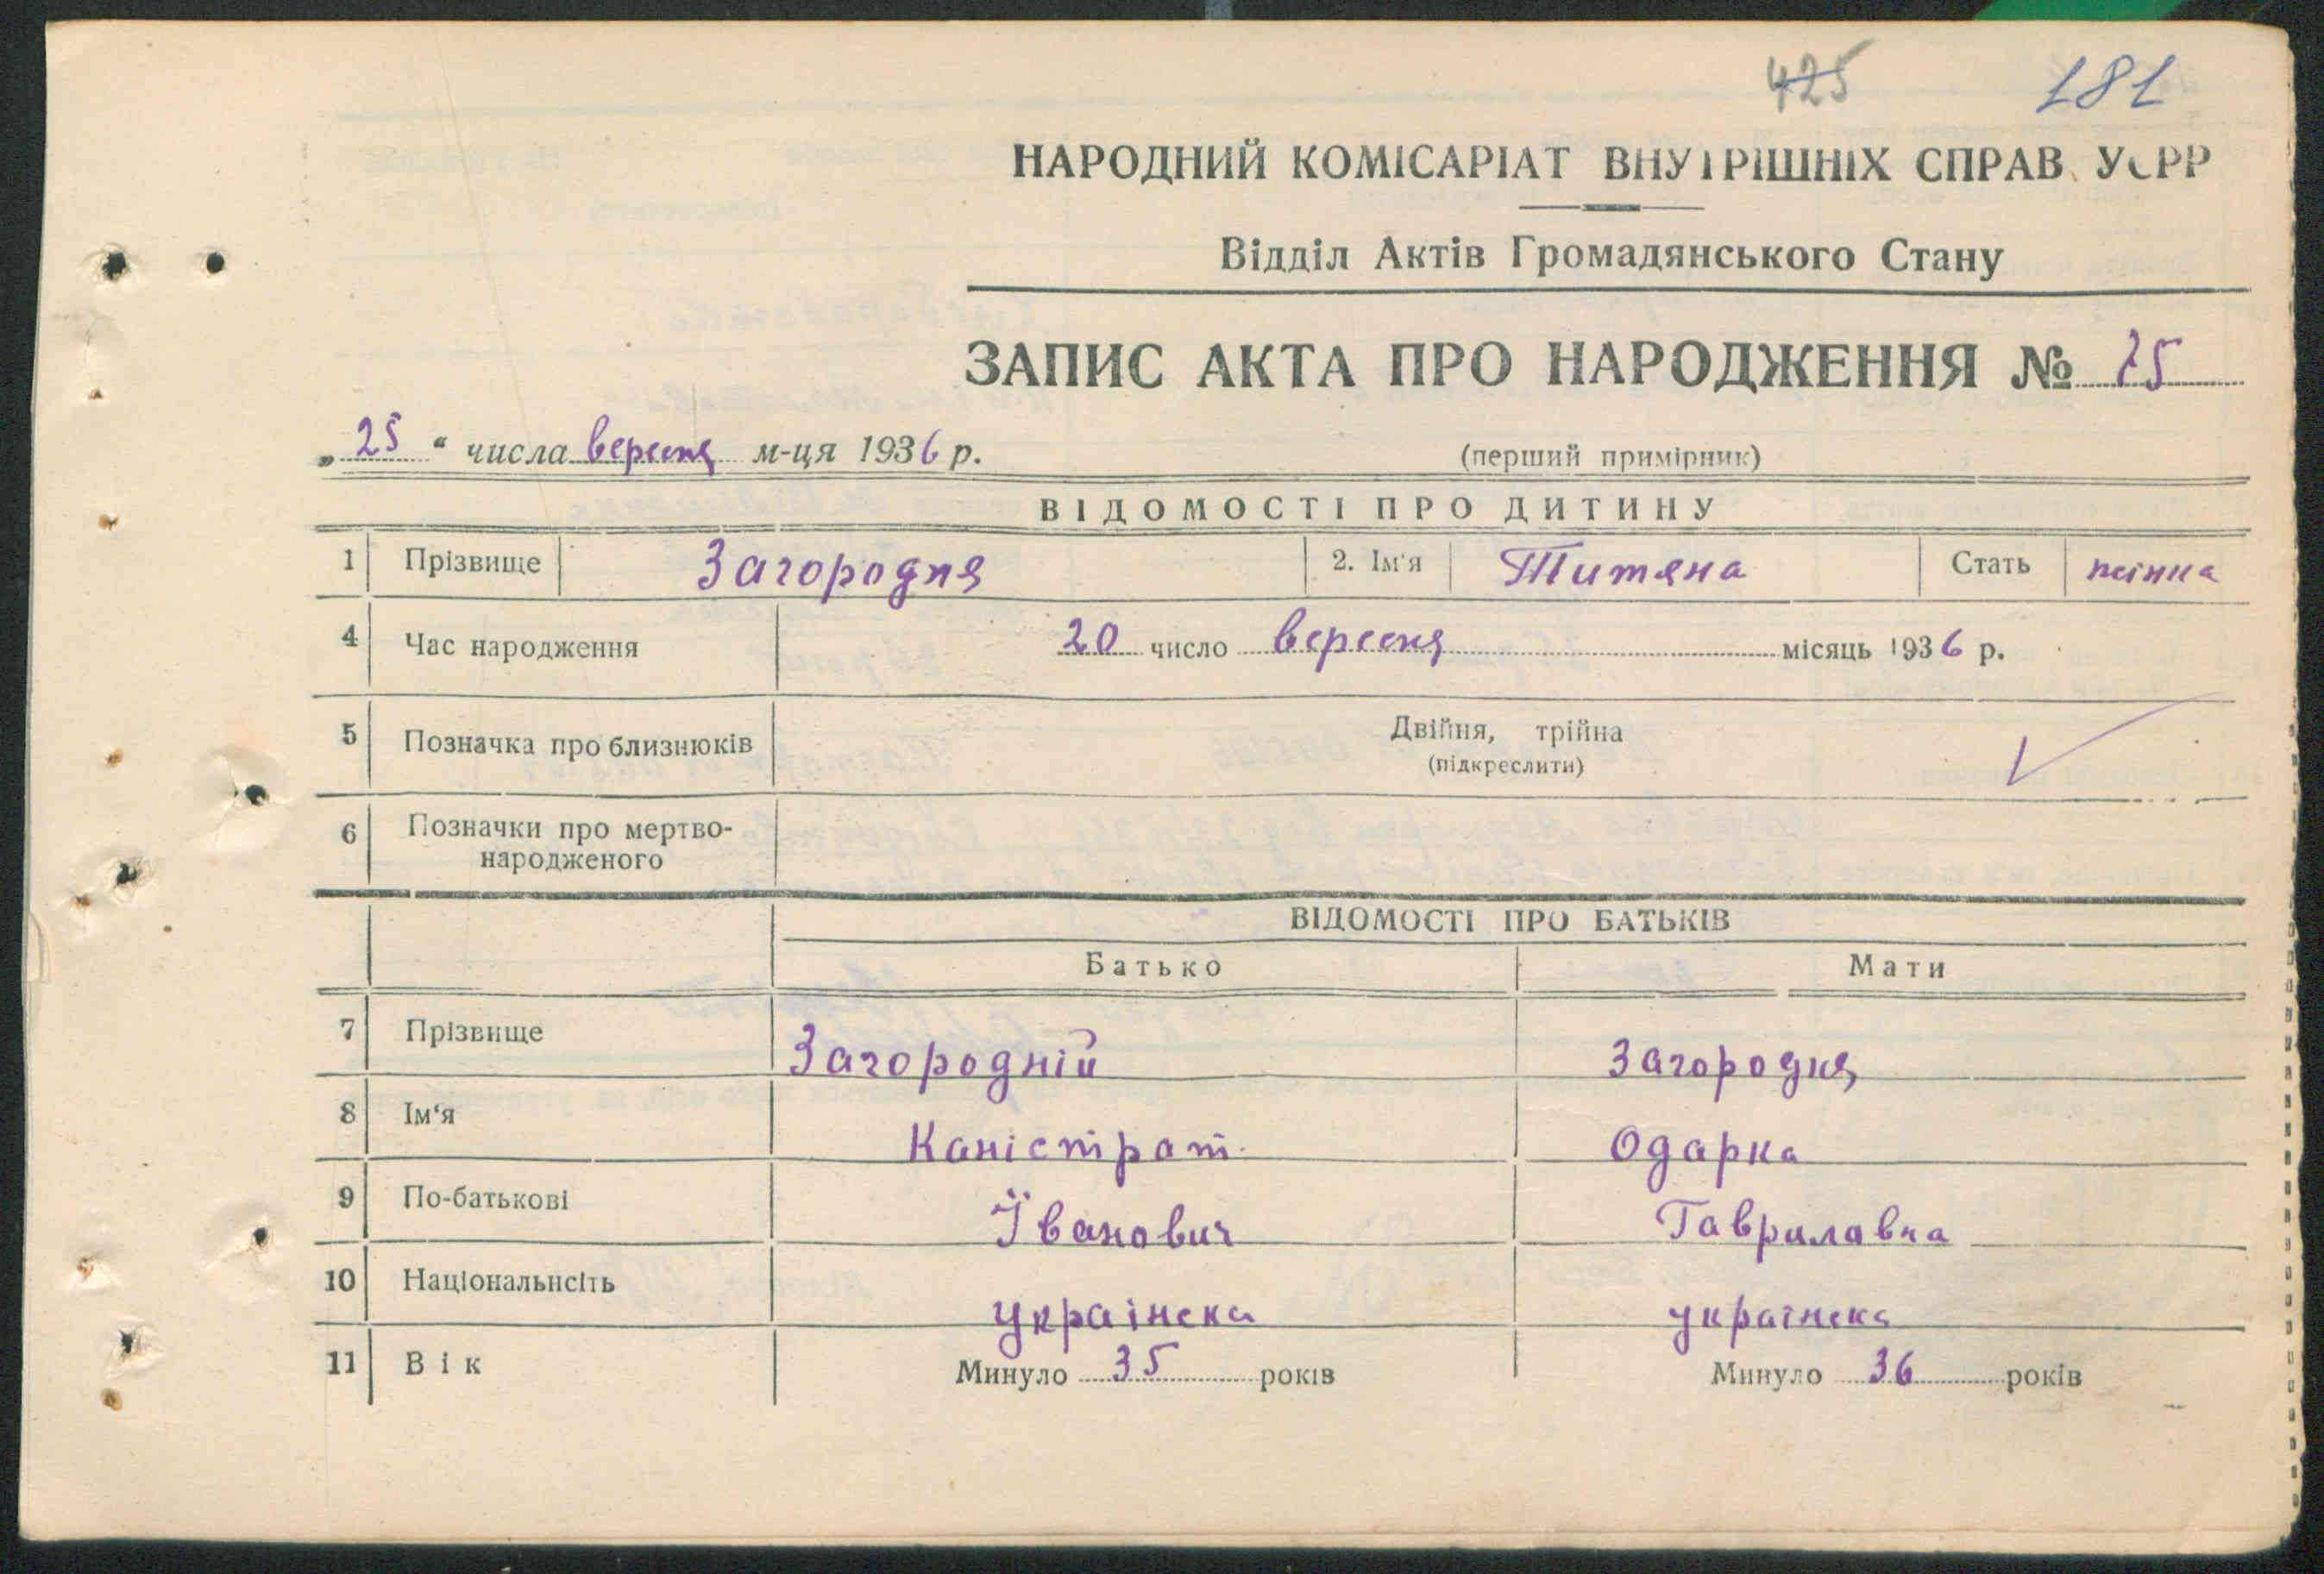 425 181
НАРОДНИЙ КОМІСАРІАТ ВНУТРІШНІХ СПРАВ УСРР
Відділ Актів Громадянського Стану
ЗАПИС АКТА ПРО НАРОДЖЕННЯ № 75
„ 25 “ числа вересня м-ця 1936 р. (перший примірник)
ВІДОМОСТІ ПРО ДИТИНУ
1 Прізвище Загородня 2. Ім'я Титяна Стать жінка
4 Час народження 20 число вересня місяць 1936 р.
5 Позначка про близнюків Двійня, трійна
(підкреслити)
6 Позначки про мертво-
народженого
ВІДОМОСТІ ПРО БАТЬКІВ
Батько Мати
7 Прізвище Загородній Загородня
8 Ім‘я Каністрат Одарка
9 По-батькові Їванович Гаврилавна
10 Національнсіть украінска украінска
11 Вік Минуло 35 років Минуло 36 років